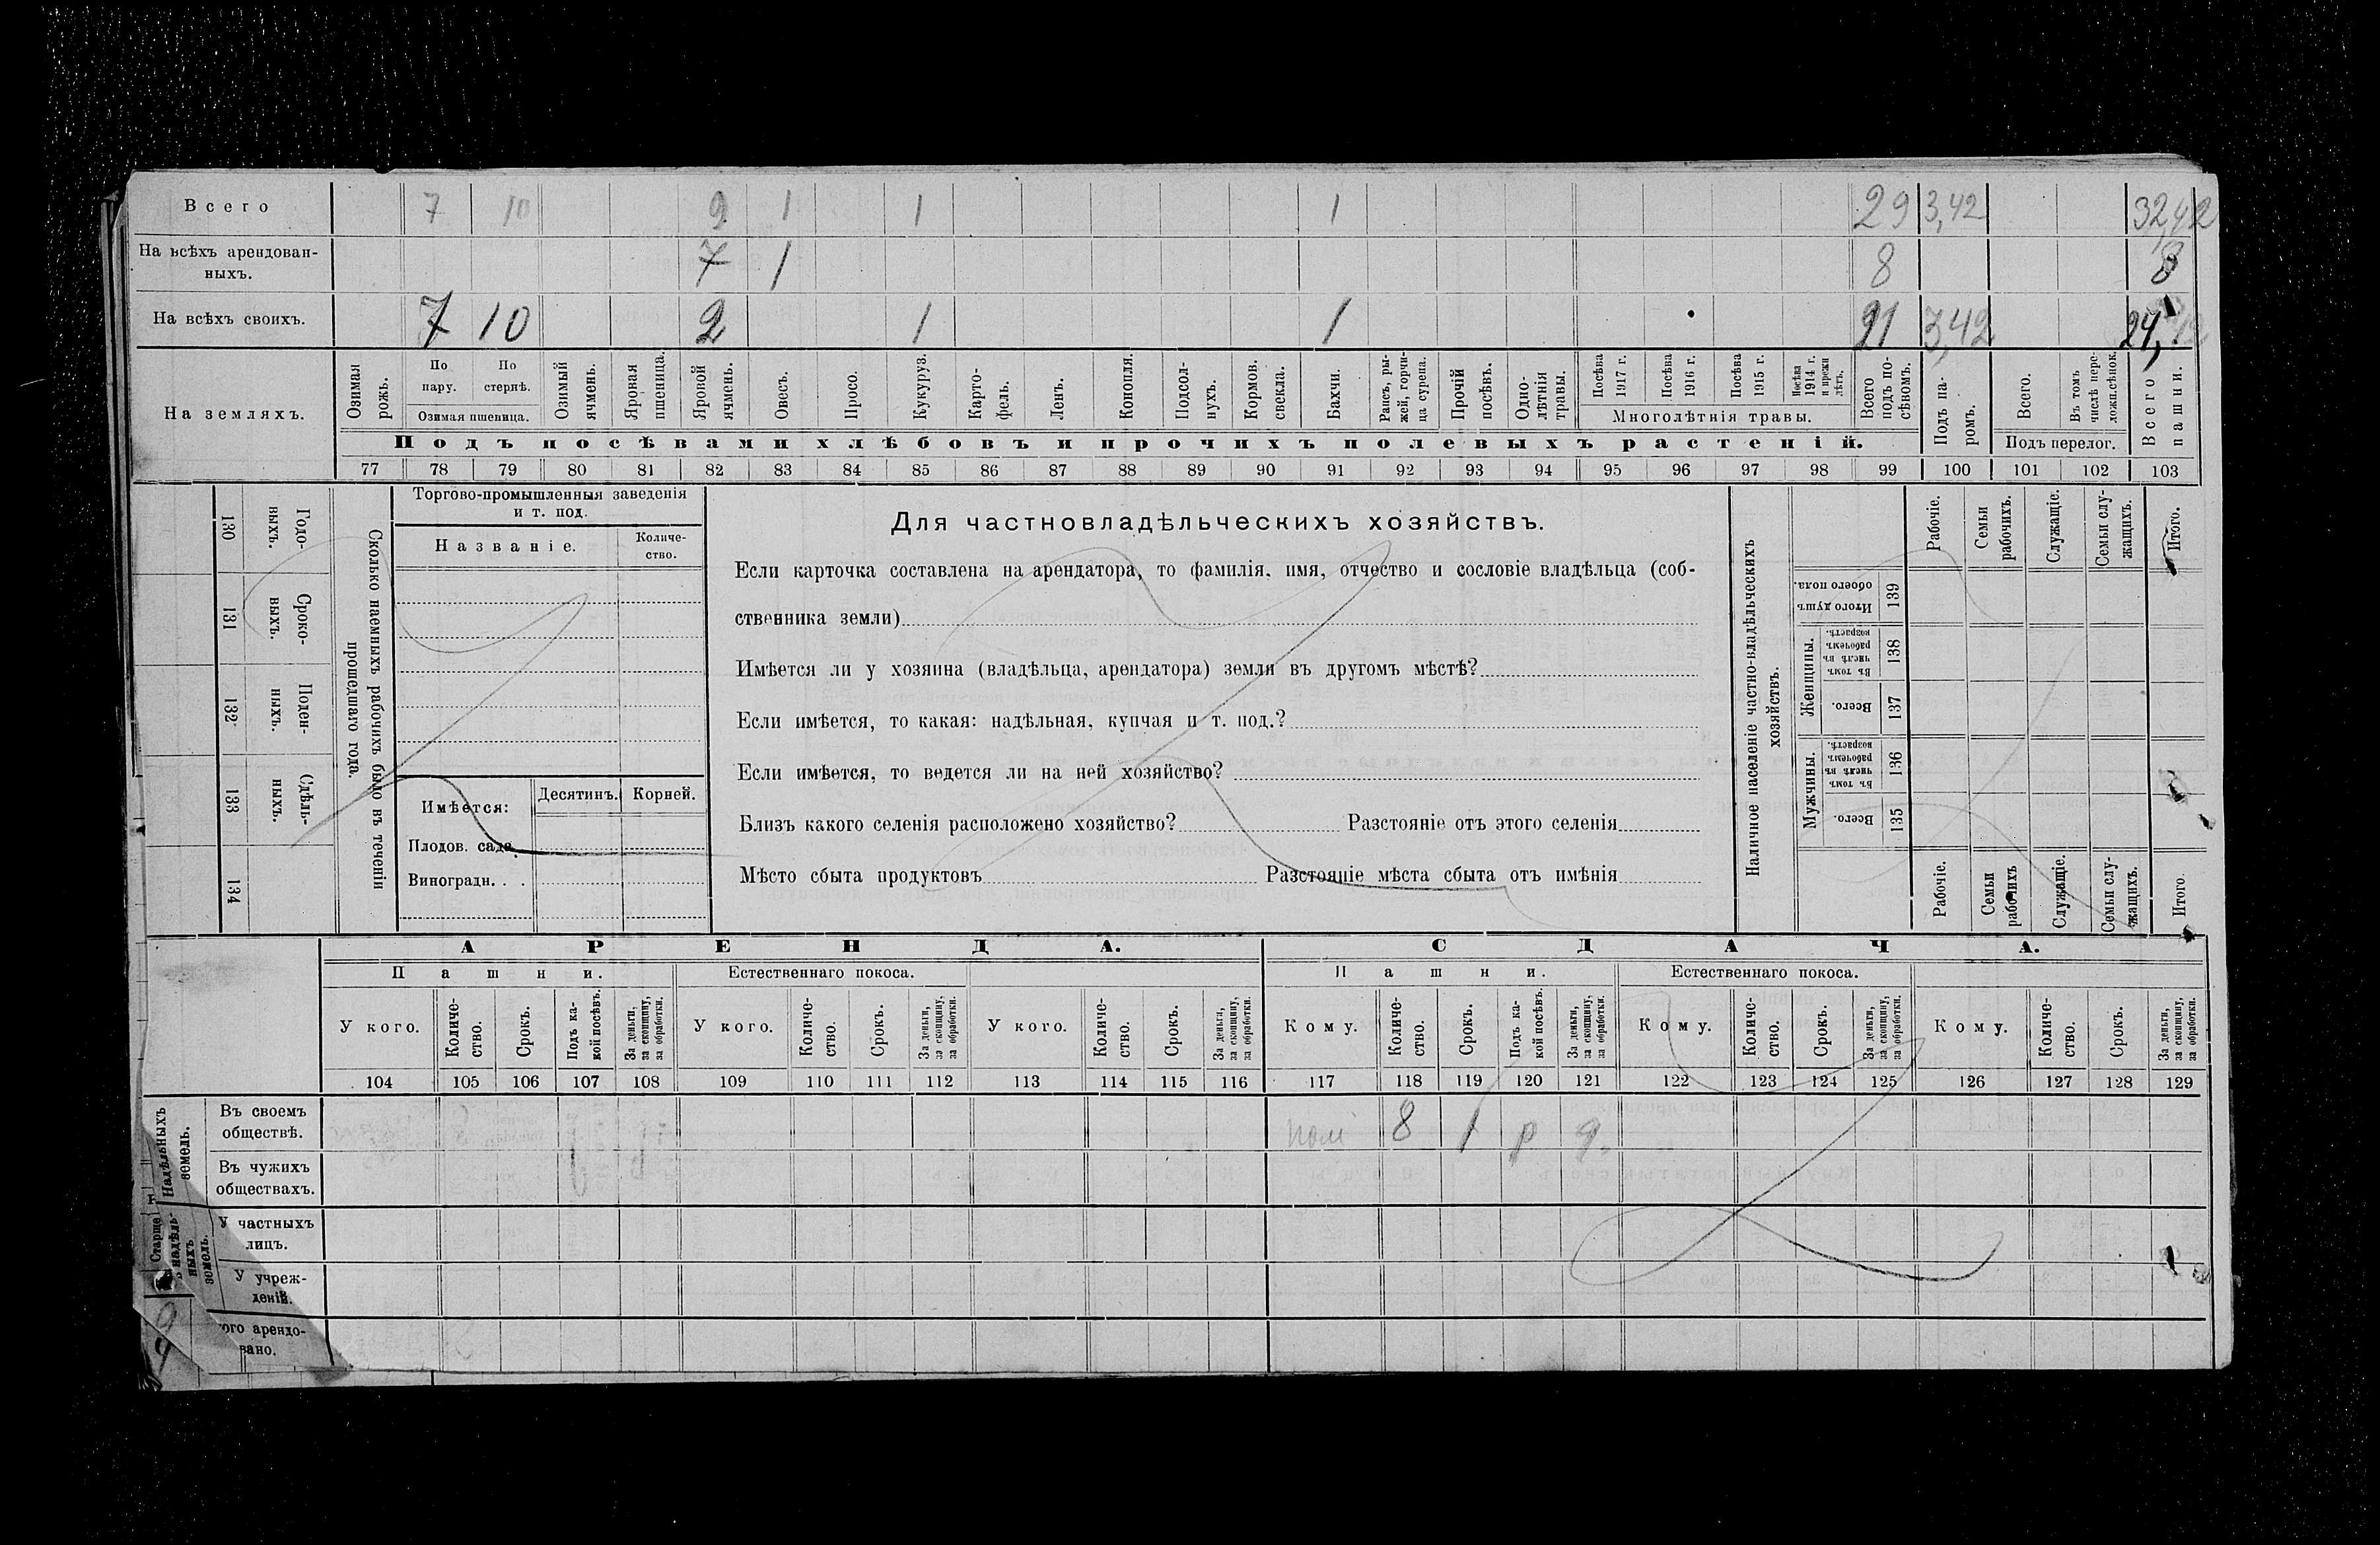 Всего 7 10 9 1 1 1 29 3,42 32,42
На всѣхъ арендован-
ныхъ. 7 1 8 8
На всѣхъ своихъ. 7 10 2 1 1 21 3,42 24,42
На земляхъ.
Озимая рожь.
По пару.
По стернѣ.
Озимая пшеница.
Озимый ячмень.
Яровая пшеница.
Яровой ячмень.
Овесъ.
Просо.
Кукуруз.
Карто-
фель.
Ленъ.
Конопля.
Подсол-
нухъ.
Кормов.
свекла.
Бахчи.
Рапсъ, ры-
жей, горчи-
ца сурепа.
Прочій
посѣвъ.
Одно-
лѣтнія
травы.
Посѣва
1917 г.
Посѣва
1916 г.
Посѣва
1915 г.
Посѣва
1914 г.
и прежн
лѣтъ.
Многолѣтнія травы.
Всего
подъ по-
сѣвомъ.
Подъ па-
ромъ.
Всего.
Въ томъ
числѣ пере-
ложн.сѣнок.
Подъ перелог.
Всего
пашни.
Подъ посѣвами хлѣбовъ и прочихъ полевыхъ растеній.
77 78 79 80 81 82 83 84 85 86 87 88 89 90 91 92 93 94 95 96 97 98 99 100 101 102 103
Сколько наемныхъ рабочихъ было въ теченіи
прошедшаго года.
Годо-
выхъ.
130
Сроко-
выхъ.
131
Поден-
ныхъ.
132
Сдѣль-
ныхъ.
133
134
Торгово-промышленныя заведенія
и т. под.
Названіе.
Количе-
ство.
Имѣется:
Десятинъ.
Корней.
Плодов. сада.
Виноградн. . .
Для частновладѣльческихъ хозяйствъ.
Если карточка составлена на арендатора, то фамилія, имя, отчество и сословіе владѣльца (соб-
ственника земли)
Имѣется ли у хозяина (владѣльца, арендатора) земля въ другомъ мѣстѣ?
Если имѣется, то какая: надѣльная, купчая и т. под.?
Если имѣется, то ведется ли на ней хозяйство?
Близъ какого селенія расположено хозяйство? Разстояніе отъ этого селенія
Мѣсто сбыта продуктовъ Разстояніе мѣста сбыта отъ имѣнія
Наличное населеніе частно-владѣльческихъ
хозяйствъ.
Рабочіе.
Семьи
рабочихъ.
Служащіе.
Семьи слу-
жащихъ.
Итого.
Итого душъ
обоего пола.
139
Женщины.
Въ томъ
числѣ въ
рабочемъ
возрастѣ.
138
Всего.
137
Мужчины.
Въ томъ
числѣ въ
рабочемъ
возрастѣ.
136
Всего.
135
Рабочіе.
Семьи
рабочихъ
Служащіе.
Семьи слу-
жащихъ.
Итого.
АРЕНДА. СДАЧА.
Пашни. Естественнаго покоса. Пашни. Естественнаго покоса.
У кого.
Количе-
ство.
Срокъ.
Подъ ка-
кой посѣвъ.
За деньги,
за скопщину,
за обработки.
У кого.
Количе-
ство.
Срокъ.
За деньги,
за скопщину,
за обработки.
У кого.
Количе-
ство.
Срокъ.
За деньги,
за скопщину,
за обработки.
Кому.
Количе-
ство.
Срокъ.
Подъ ка-
кой посѣвъ.
За деньги,
за скопщину,
за обработки.
Кому.
Количе-
ство.
Срокъ.
За деньги,
за скопщину,
за обработки.
Кому.
Количе-
ство.
Срокъ.
За деньги,
за скопщину,
за обработки.
104 105 106 107 108 109 110 111 112 113 114 115 116 117 118 119 120 121 122 123 124 125 126 127 128 129
Надѣльныхъ
земель.
Въ своемъ
обществѣ. 8 1 р
Въ чужихъ
обществахъ.
Старше
надѣль-
ныхъ
земель.
У частныхъ
лицъ.
У учреж-
деній.
ого арендо-
вано.